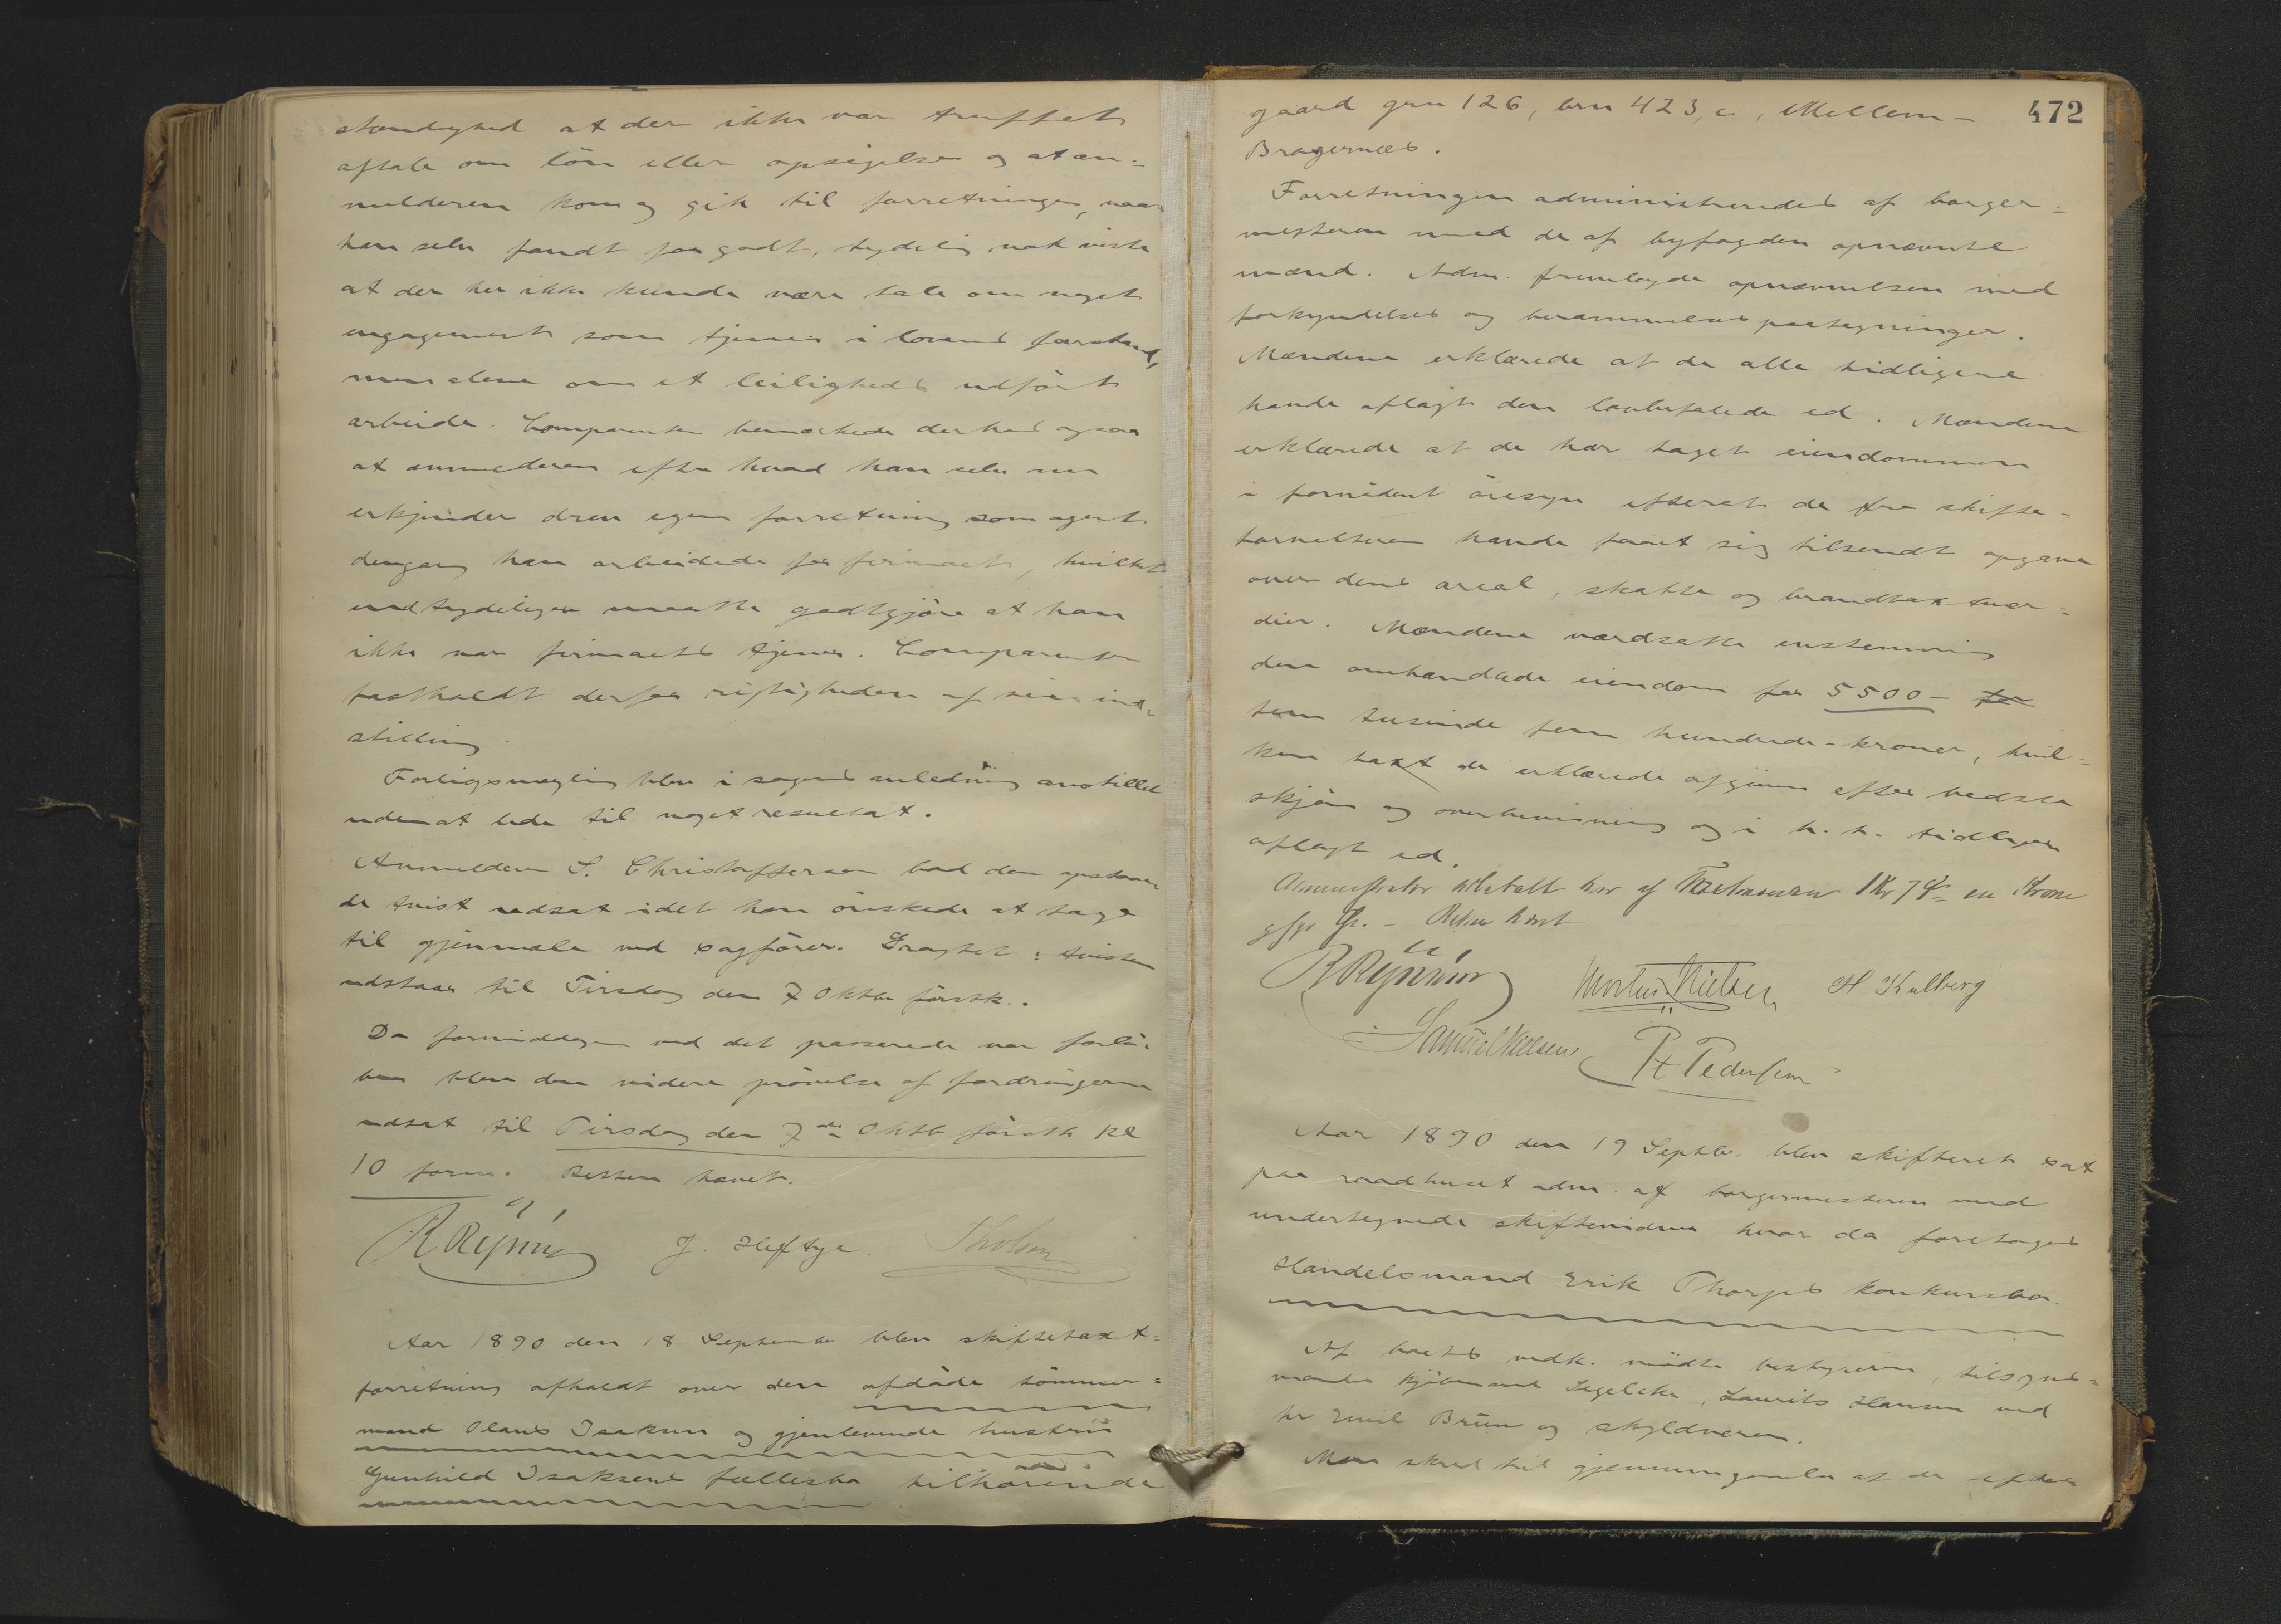 standighed at der ikke var truffet
aftale om lön eller opsigelse og at an-
melderen kom og gik til forretningen, naar
han selv fandt for godt, tydelig nok viste
at der her ikke kunde være tale om noget
engagement som tjener i lovens forstand,
men alene om et leilighedsudfört
arbeide. Comparenten bemærkede derhos ogsaa
at anmelderen efter hvad han selv nu
erkjender drev egen forretning som agent
dengang han arbeidede for firmaet, hvilket
end tydeligere maatte godtgjöre at han
ikke var firmaets tjener. Comparenten
fastholdt derfor rigtigheden af sin ind-
stilling.
Forligsmægling blev i sagens anledning anstillet
uden at lede til noget resultat.
Anmelderen S. Christoffersen bad den opstaae-
de tvist udsat idet han önskede at tage
til gjenmæle ved sagförer. Eragtet: tvisten
udstaar til Tirsdag den 7 Oktbr förstk..
Da formiddagen ved det passerede var forlö-
ben blev den videre prövelse af fordringerne
udsat til Tirsdag den 7de Oktb förstk kl
10 form. Retten hævet.
R Rynning J. Heftye. Tholsen
Aar 1890 den 18 September blev skiftetaxt-
forretning afholdt over den afdöde tömmer-
mand Olaus Isaksen og gjenlevende hustru
Gunhild Isaksens fællesbo tilhörende
472
gaard grn 126, brn 423, c, Mellem-
Bragernæs.
Forretningen administreredes af borger-
mesteren med de af byfogden opnævnte
mænd. Adm. fremlagde opnævnelsen med
forkyndelses og berammelses paategninger.
Mændene erklærede at de alle tidligere
havde aflagt den lovbefalede ed. Mændene
erklærede at de har taget eiendommen
i fornödent öiesyn efterat de fra skifte-
forvelteren havde faaet sig tilsendt opgave
over dens areal, skatte og brandtaxtvær-
dier. Mændene værdsatte enstemmig
den omhandlede eiendom for 5500-
fem tusinde fem hundrede - kroner, hvil-
ken taxt de erklærede afgiven efter bedste
skjön og overbevisning og i h. t. tidligere
aflagt ed.
Administrator Kr en Krone
Retten hævet
R Rynning Morten Nielsen H Kulberg
Samuel Nielsen P. Pedersen
Aar 1890 den 19 Septbr. blev skifteret sat
paa raadhuset adm. af borgermesteren med
undertegnede skiftevidner hvor da foretoges
Handelsmand Erik Thorps konkursbo.
Af boets vedk. mödte bestyreren, tilsyns-
mænd kjöbmand Segelcke, Laurits Hansen ved
hr Emil Bruun og skyldneren.
Man skred til gjennemgaaelse af de